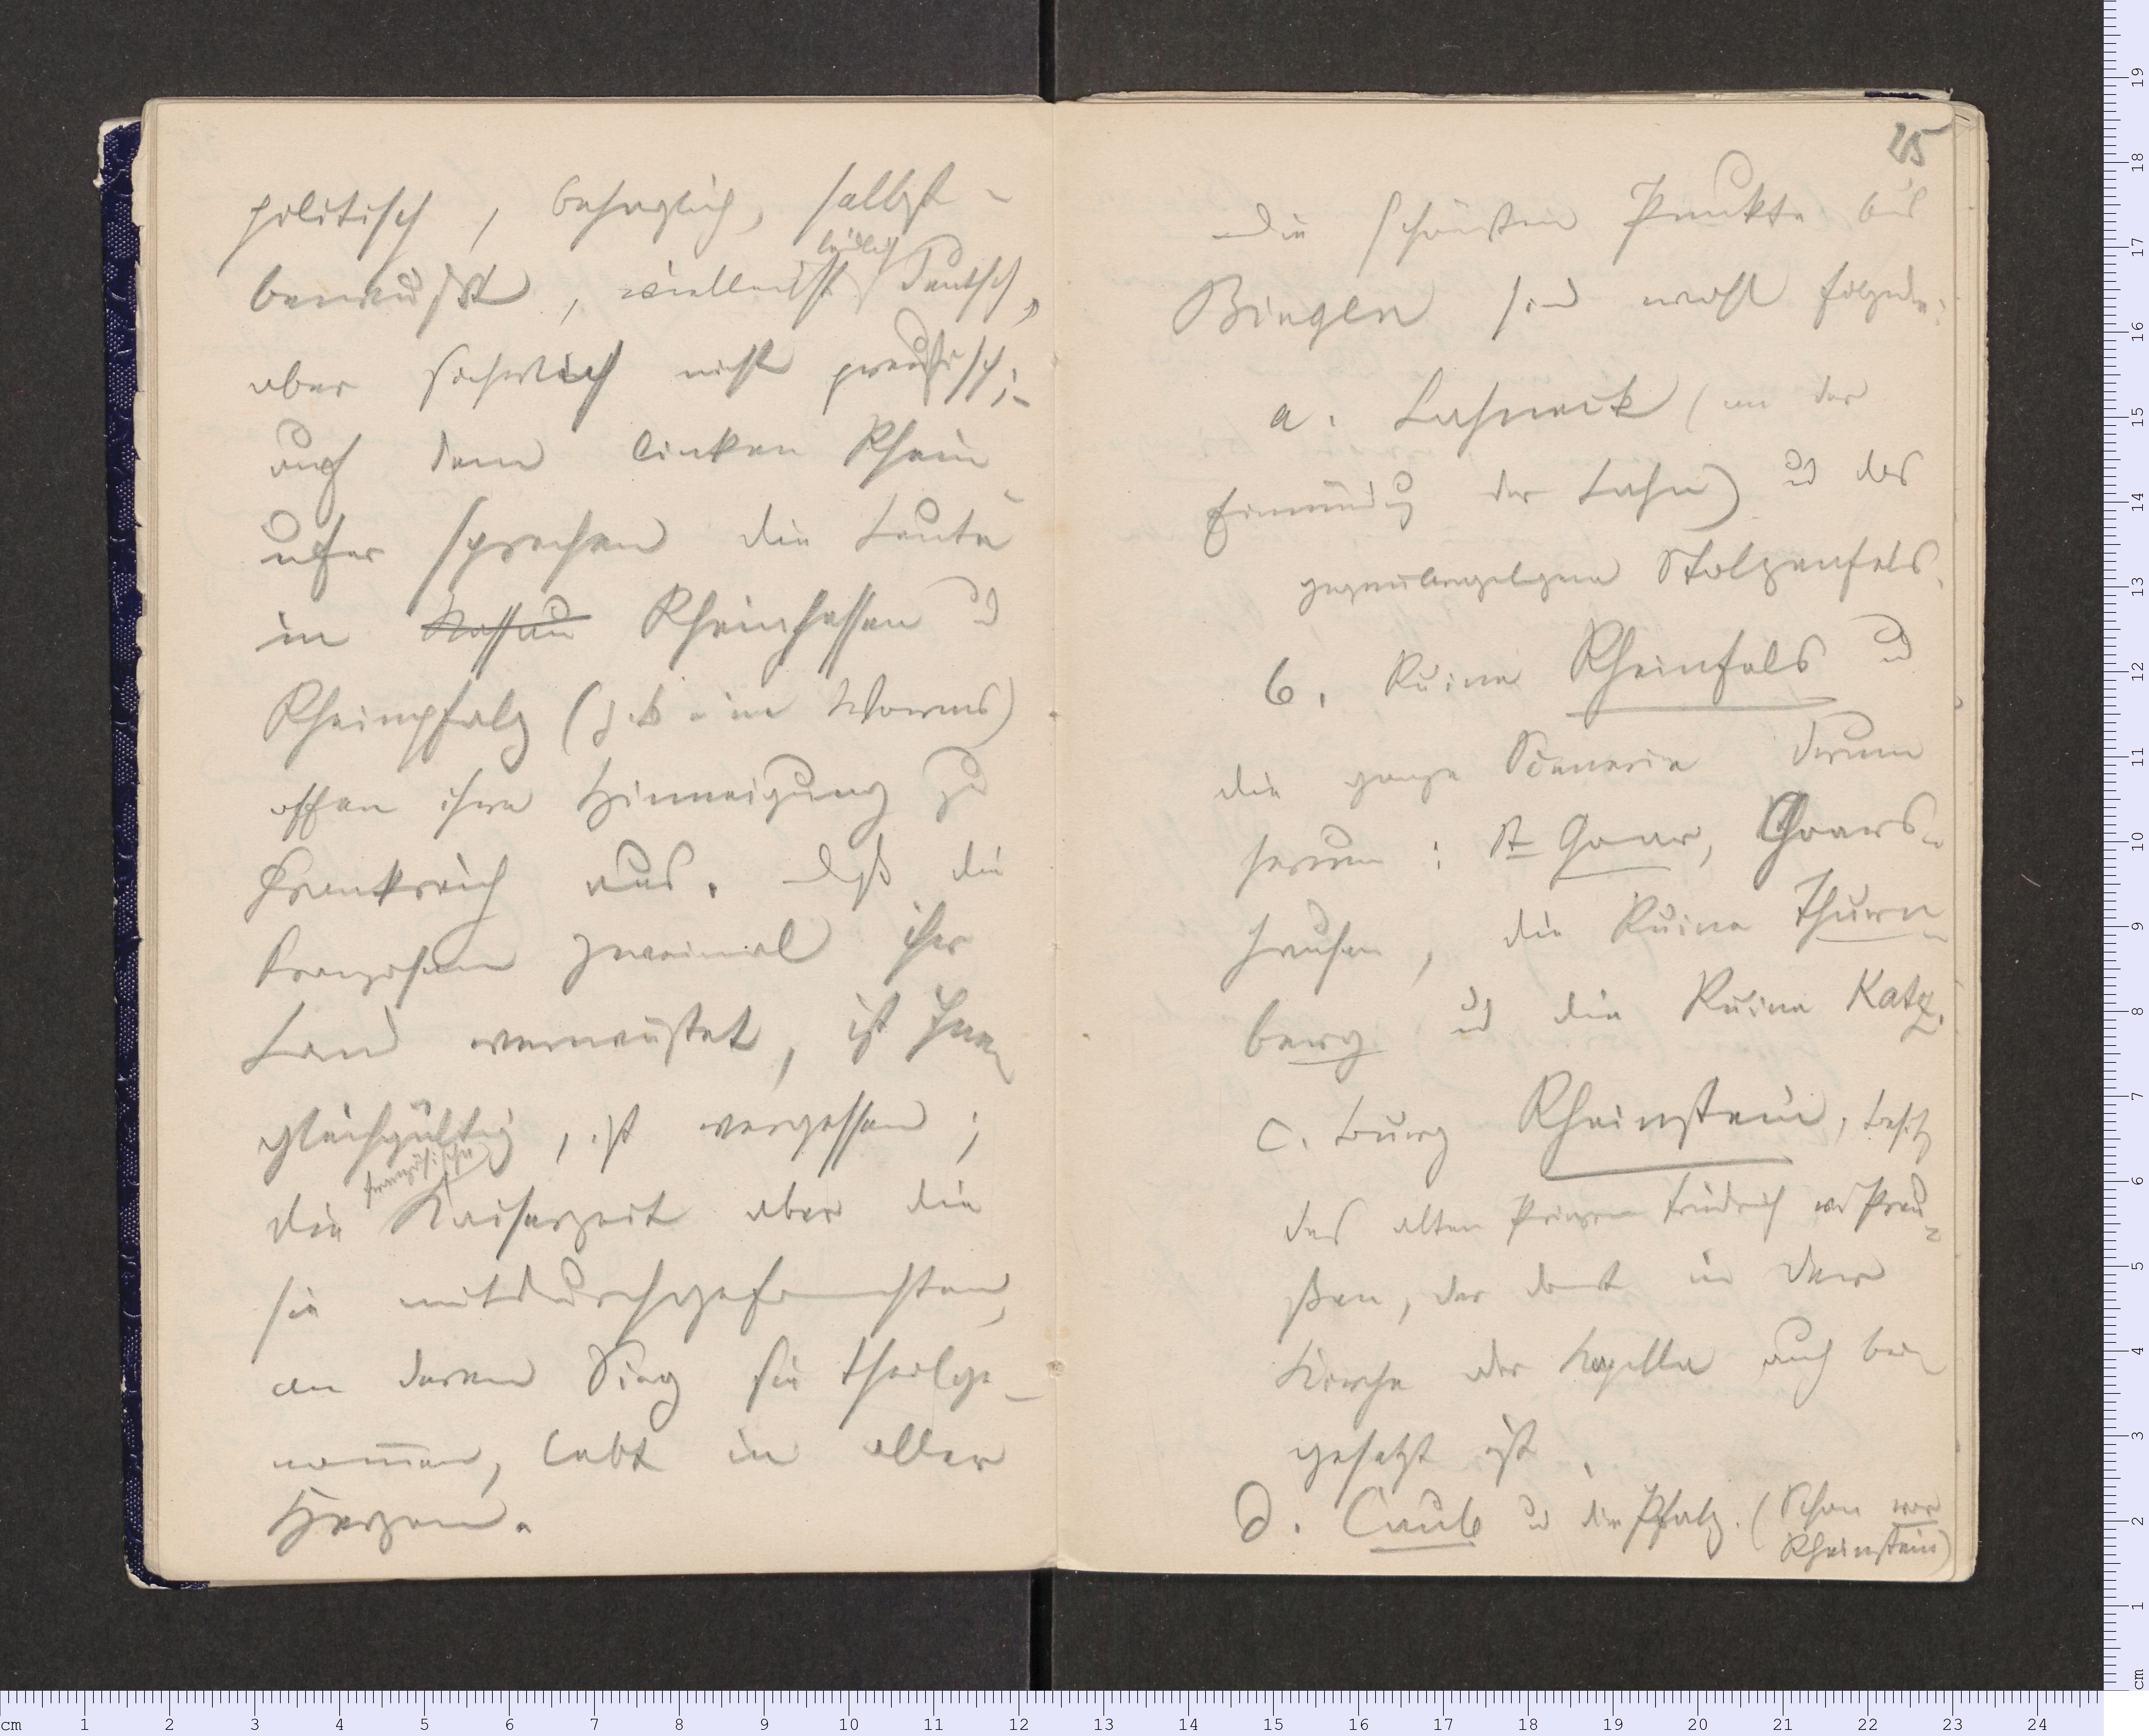 politisch, behaglich, selbst-
bewußt, vielleicht leidlich deutsch,
aber sicherlich nicht preußisch;-
auf dem linken Rhein-
ufer sprechen die Leute
in Nassau Rheinhessen u
Rheinpfalz (z. B. in Worms)
offen ihre Hinneigung zu
Frankreich aus. Daß die
Franzosen zweimal ihr
Land verwüstet, ist ihnen
gleichgültig, ist vergessen;
die französische Kaiserzeit aber die
sie mitdurchgefochten,
an deren Sieg sie theilge-
nommen, lebt in aller
Herzen.
25
Die schönsten Punkte bis
Bingen sind wohl folgende:
a. Lahneck (an der
Einmündung der Lahn) und das
gegenübergelegene Stolzenfels.
b. Ruine Rheinfels und
die ganze Scenerie drum
herum: St Goar, Goars-
hausen, die Ruine Thurn-
berg und die Ruine Katz.
c. Burg Rheinstein, Besitz
des alten Prinzen Friedrich v. Preu-
ßen, der dort in der
Kirche oder Kapelle auch bei-
gesetzt ist.
d. Caub u die Pfalz. (Schon vor
Rheinstein)